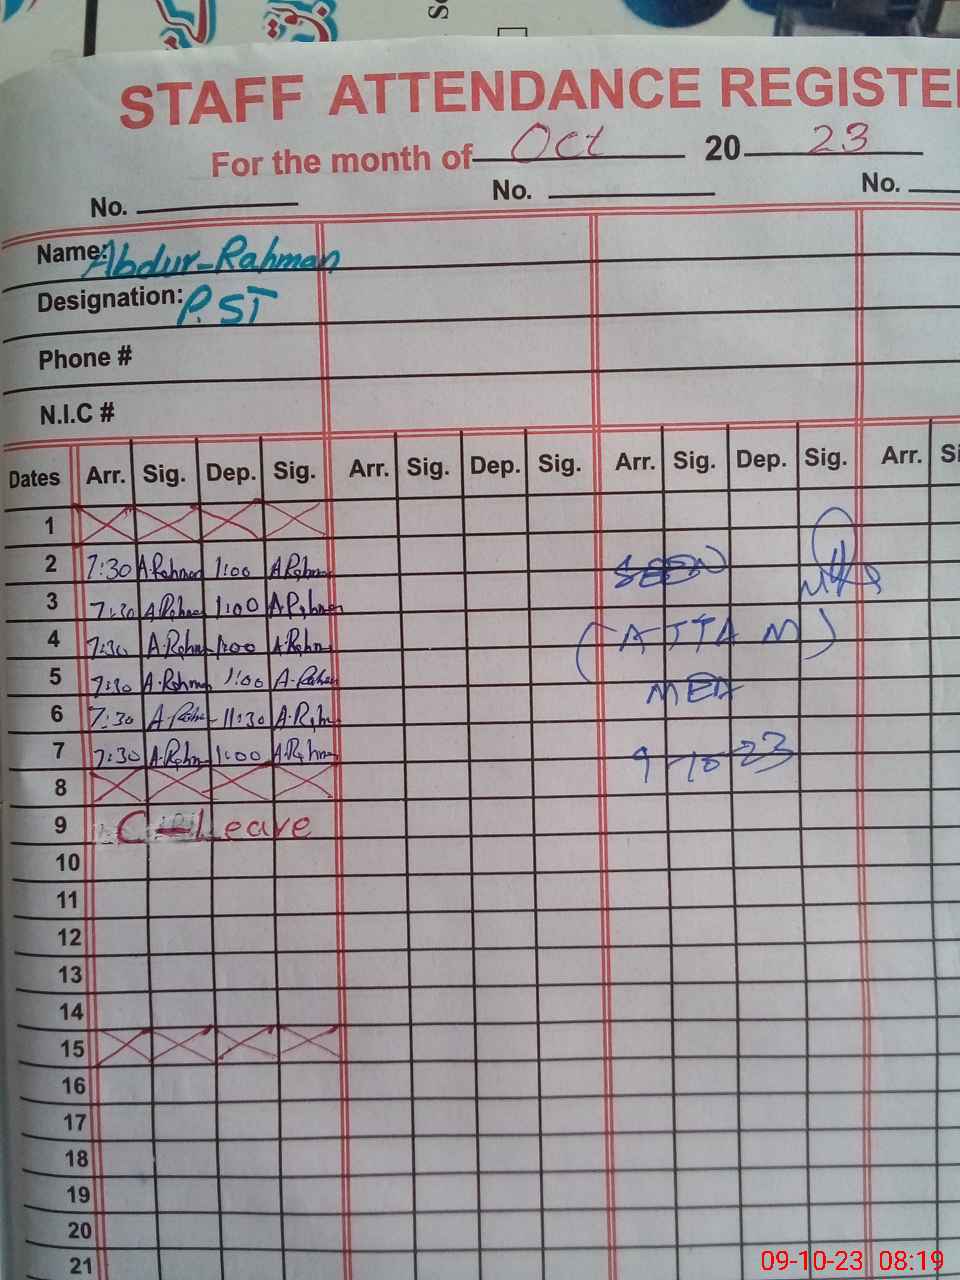 STAFF ATTENDANCE REGISTE
For the month of Oct 20 23
No. No. No.
Name: Abdur-Rahman
Designation: P.ST
Phone #
N.I.C #
Dates Arr. Sig. Dep. Sig. Arr. Sig. Dep. Sig. Arr. Sig. Dep. Sig. Arr. Si
1
2 7:30 A.Rahman 1:00 A.Rahman SEEN
3 7:30 A.Rahman 1:00 A.Rahman
4 7:30 A.Rahman 1:00 A.Rahman (ATTA M)
5 7:30 A.Rahman 1:00 A.Rahman MEA
6 7:30 A.Rahman 11:30 A.Rahman
7 7:30 A.Rahman 1:00 A.Rahman 9-10-23
8
9 C-Leave
10
11
12
13
14
15
16
17
18
19
20
21
09-10-23 08:19